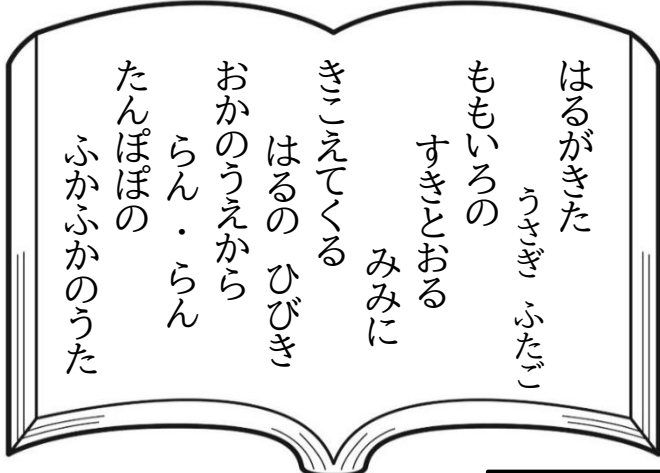 はるがきた
うさぎ ふたご
ももいろの
すきとおる
みみに
きこえてくる
はるの ひびき
おかのうえから
らん・らん
たんぽぽの
ふかふかのうた